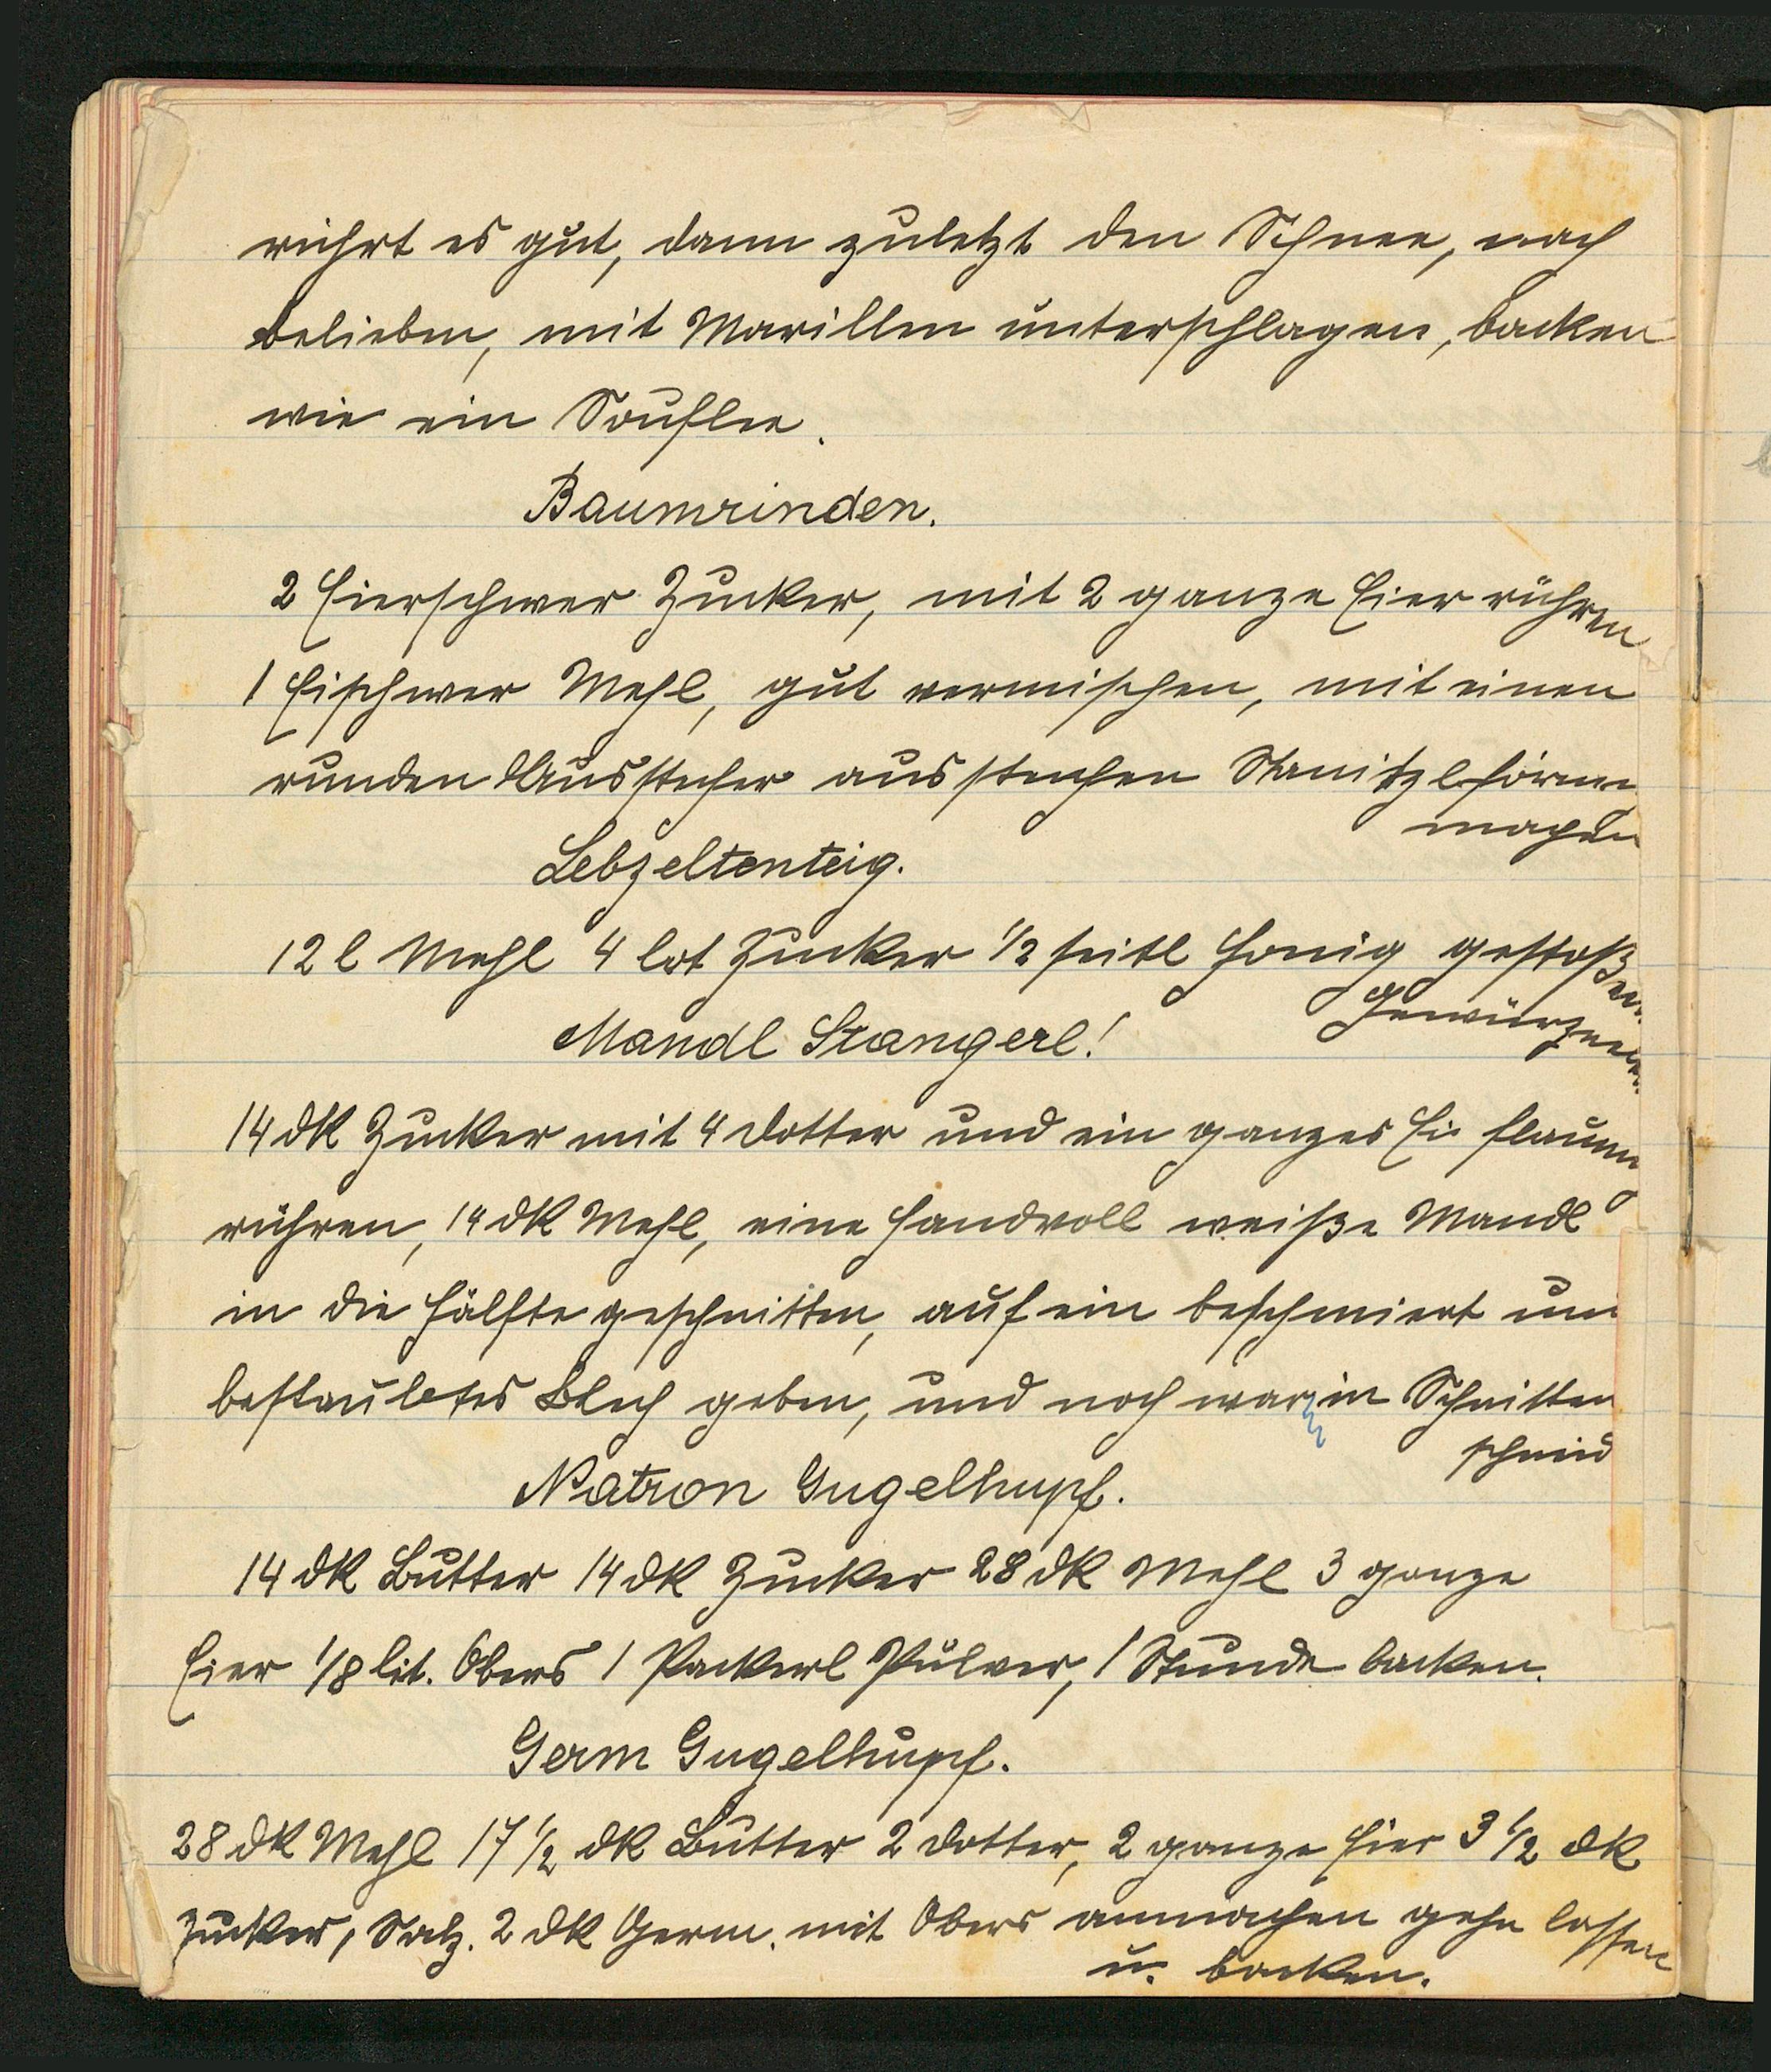 rührt es gut, dann zuletzt den Schnee, nach
belieben, mit Marillen unterschlagen, backen
wie ein Souflee.
Baumrinden.
2 Eierschwer Zucker, mit 2 ganze Eier rühren
1 Eischwer Mehl, gut vermischen, mit einen
runden Ausstecher ausstechen Stanitzelförmig
machen
Lebzeltenteig.
12 l Mehl 4 lot Zucker 1/2 seitl Honig gestoßen
Gewürznelken.
Mandl Stangerl!
14 dk Zucker mit 4 Dotter und ein ganzes Ei flaumig
rühren, 14 dk Mehl, eine Handvoll weiße Mandl
in die Hälfte geschnitten, auf ein beschmiert und
bestaubtes Blech geben, und noch warm in Schnitten
schneid
Natron Gugelhupf.
14 dk Butter 14 dk Zucker 28 dk Mehl 3 ganze
Eier 1/8 lit. Obers 1 Packerl Pulver, 1 Stunde backen.
Germ Gugelhupf.
28 dk Mehl 17 1/2 dk Butter 2 Dotter, 2 ganze Eier 3 1/2 dk
Zucker, Salz. 2 dk Germ. mit Obers anmachen gehn lassen
u. backen.